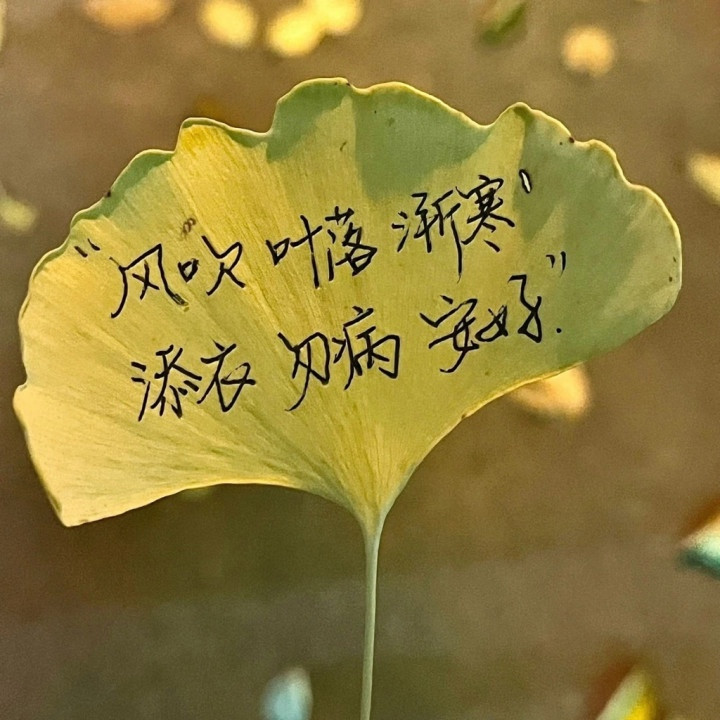 “风吹 叶落 渐寒，
添衣 勿病 安好.”